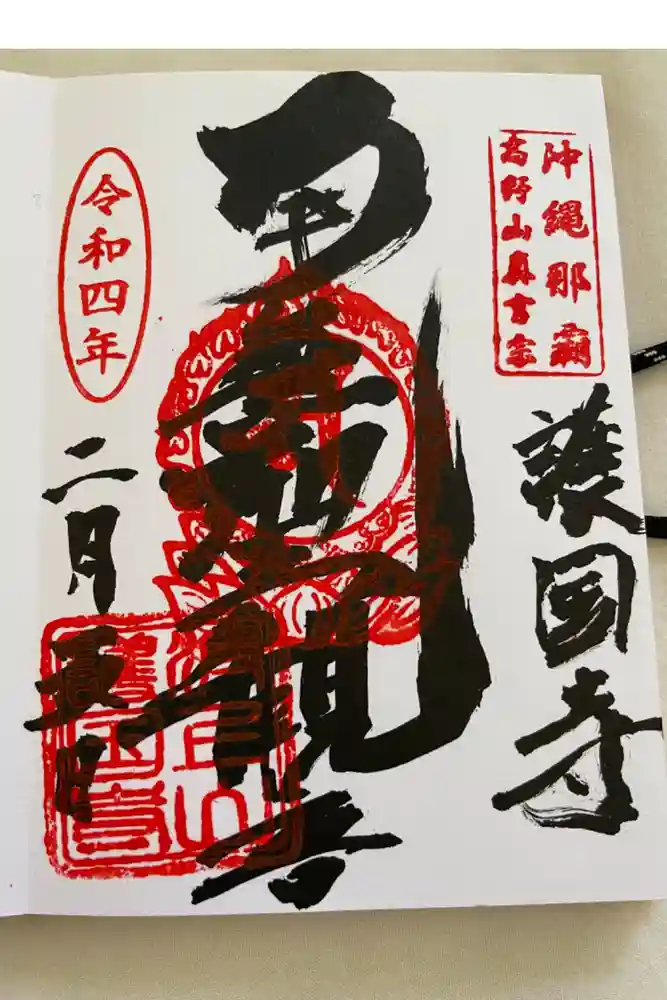 沖縄那覇
高野山真言宗
護国寺
観音
令和四年
二月五日
波上山
護国寺